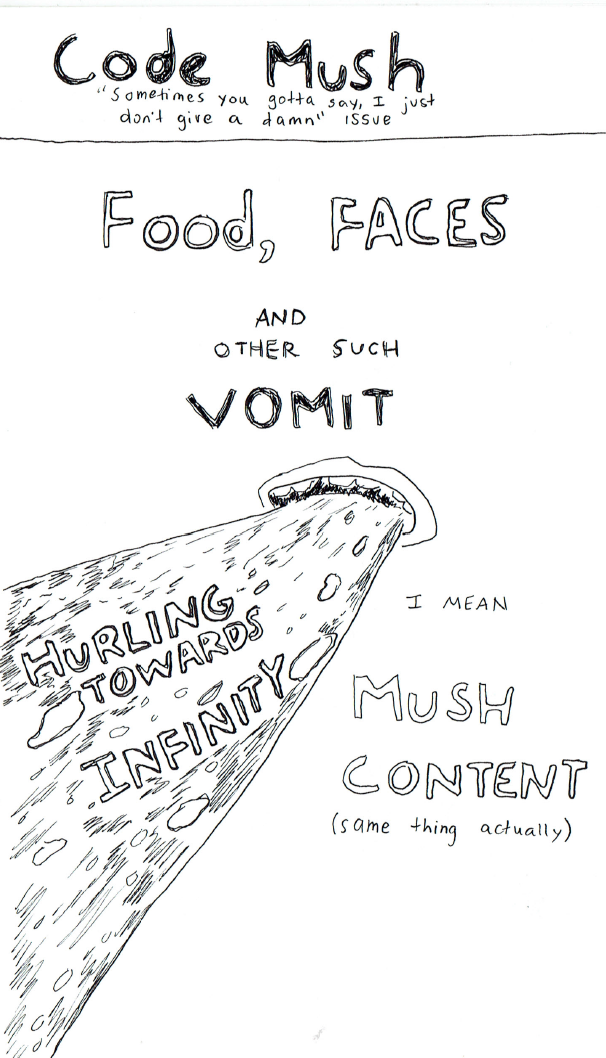 Code Mush
"Sometimes you gotta say, I just
don't give a damn" ISSUE
Food, FACES
AND
OTHER SUCH
VOMIT
HURLING
TOWARDS
INFINITY
I MEAN
MUSH
CONTENT
(same thing actually)